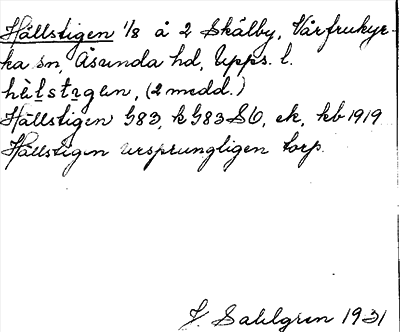 Hällstigen 1/8 å 2 Skälby, Vårfrukyr-
ka sn, Åsunda hd, Upps. l.
hä̀lstıgan, (2 medd.)
Hällstigen G83, k G83 SO, ek, kb 1919
Hällstigen ursprungligen torp.
J. Sahlgren 1931